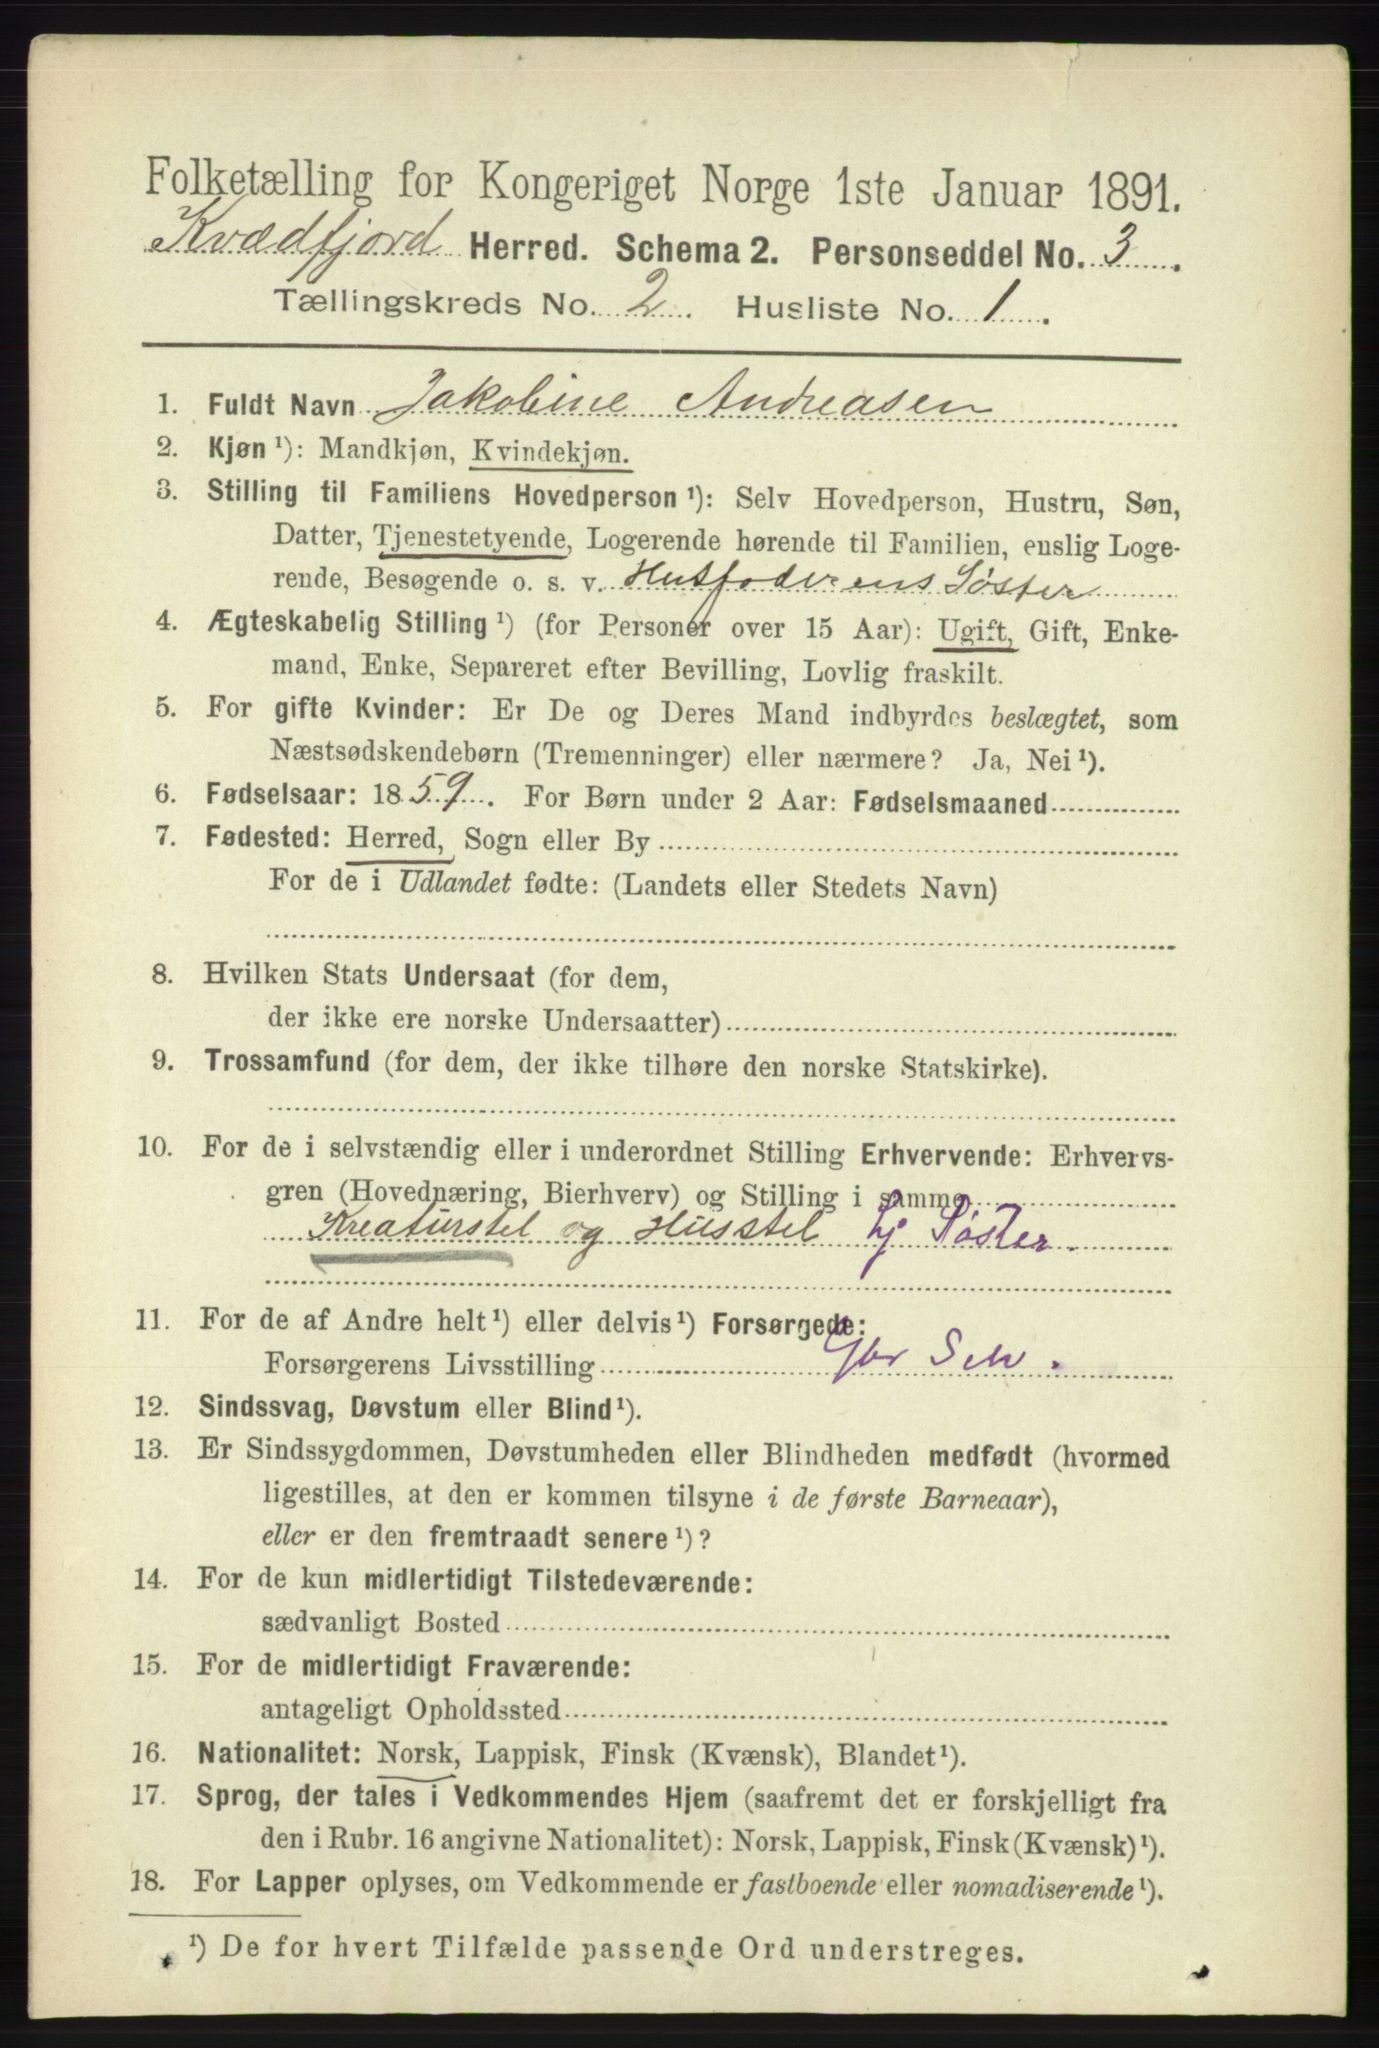 Folketælling for Kongeriget Norge 1ste Januar 1891.
Kvædfjord Herred. Schema 2. Personseddel No. 3.
Tællingskreds No. 2. Husliste No. 1.
1. Fuldt Navn Jakobine Andreasen
2. Kjøn ¹): Mandkjøn, Kvindekjøn.
3. Stilling til Familiens Hovedperson ¹): Selv Hovedperson, Hustru, Søn,
Datter, Tjenestetyende, Logerende hørende til Familien, enslig Loge-
rende, Besøgende o. s. v. Husfaderens Søster
4. Ægteskabelig Stilling ¹) (for Personer over 15 Aar): Ugift, Gift, Enke-
mand, Enke, Separeret efter Bevilling, Lovlig fraskilt.
5. For gifte Kvinder: Er De og Deres Mand indbyrdes beslægtet, som
Næstsødskendebørn (Tremenninger) eller nærmere? Ja, Nei ¹).
6. Fødselsaar: 1859. For Børn under 2 Aar: Fødselsmaaned
7. Fødested: Herred, Sogn eller By
For de i Udlandet fødte: (Landets eller Stedets Navn)
8. Hvilken Stats Undersaat (for dem,
der ikke ere norske Undersaatter)
9. Trossamfund (for dem, der ikke tilhøre den norske Statskirke).
10. For de i selvstændig eller i underordnet Stilling Erhvervende: Erhvervs-
gren (Hovednæring, Bierhverv) og Stilling i samme
Kreaturstel og Husstel tj Søster.
11. For de af Andre helt ¹) eller delvis ¹) Forsørgede:
Forsørgerens Livsstilling Gbr Selv.
12. Sindssvag, Døvstum eller Blind ¹).
13. Er Sindssygdommen, Døvstumheden eller Blindheden medfødt (hvormed
ligestilles, at den er kommen tilsyne i de første Barneaar),
eller er den fremtraadt senere ¹)?
14. For de kun midlertidigt Tilstedeværende:
sædvanligt Bosted
15. For de midlertidigt Fraværende:
antageligt Opholdssted
16. Nationalitet: Norsk, Lappisk, Finsk (Kvænsk), Blandet ¹).
17. Sprog, der tales i Vedkommendes Hjem (saafremt det er forskjelligt fra
den i Rubr. 16 angivne Nationalitet): Norsk, Lappisk, Finsk (Kvænsk) ¹).
18. For Lapper oplyses, om Vedkommende er fastboende eller nomadiserende ¹).
¹) De for hvert Tilfælde passende Ord understreges.